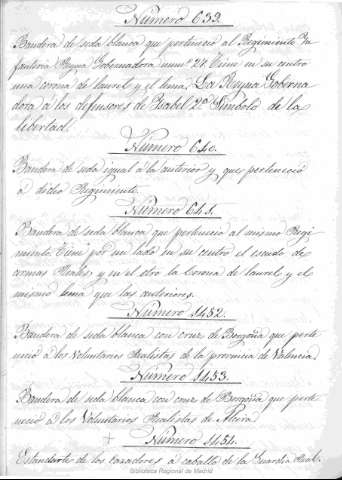 Número 639.
Bandera de seda blanca que perteneció al Regimiento In
fantería Reyna Gobernadora numº 24. Tiene en su centro
una corona de laurel y el lema, La Reyna Goberna
dora á los defensores de Ysabel 2ª Símbolo de la
libertad.
Número 640.
Bandera de seda igual á la anterior y que perteneció
á dicho Regimiento.
Número 641.
Bandera de seda blanca que perteneció al mismo Regi
miento. Tiene por un lado en su centro el escudo de
armas Reales y en el otro la Corona de laurel y el
mismo lema que las anteriores.
Número 1452.
Bandera de seda blanca con cruz de Borgoña que perte
neció á los Voluntarios Realistas de la provincia de Valencia.
Número 1453.
Bandera de seda blanca con cruz de Borgoña que perte
neció á los Voluntarios Realistas de Alcira
Número 1454.
Estandarte de los cazadores á caballo de la Guardia Real.
Biblioteca Regional de Madrid